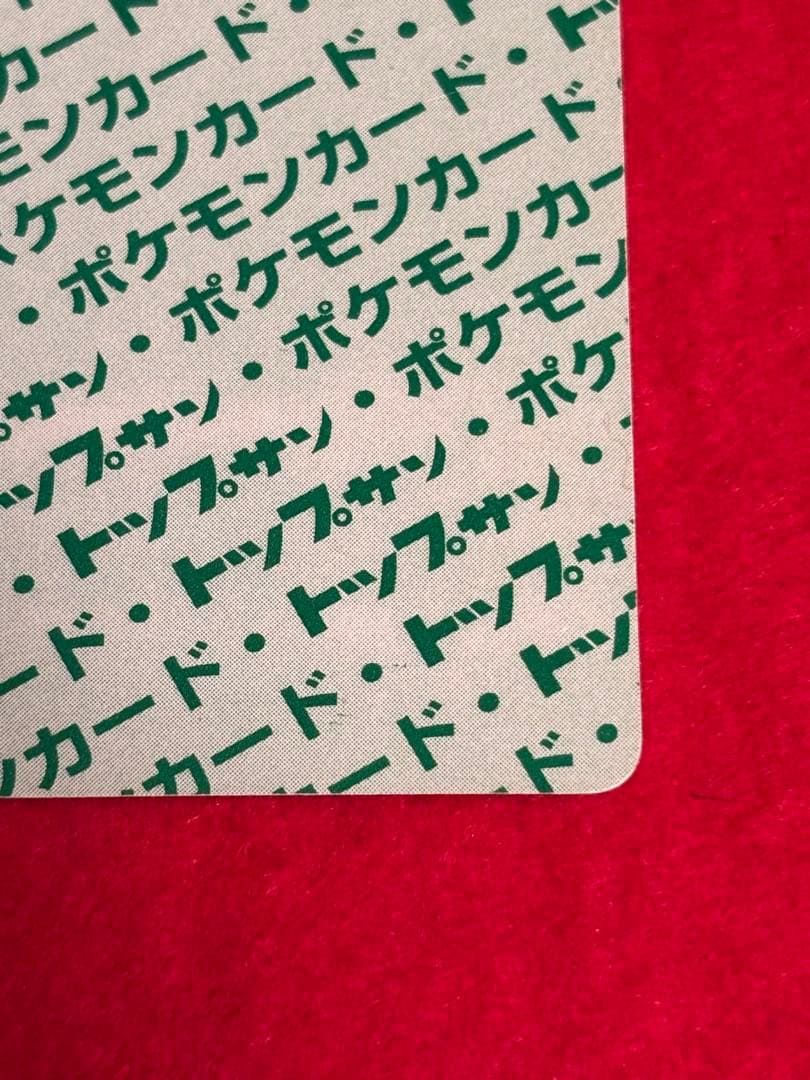 カード
モンカード・
ポケモンカード・ト
・ポケモンカード・トッ
サン・ポケモンカード・
ップサン・ポケモンカー
・トップサン・ポケモン
ード・トップサン・ポケ
ンカード・トップサン・
カード・トップサ
ード・トッ
ド・